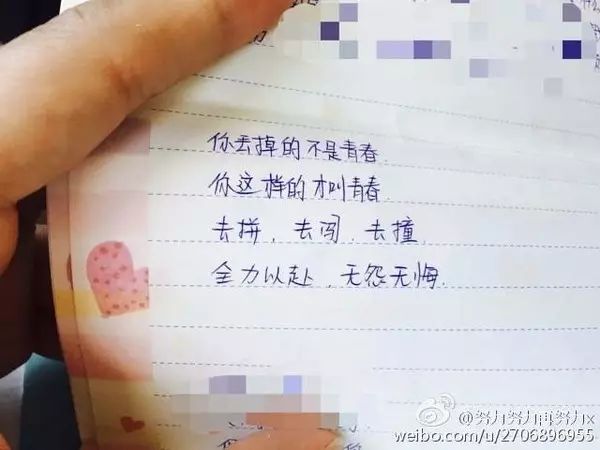 你丢掉的不是青春
你这样的才叫青春
去拼,去闯,去撞,
全力以赴,无怨无悔.
@努力努力再努力x
weibo.com/u/2706896955